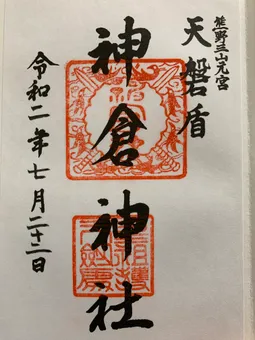 熊野三山元宮
天磐盾
神倉神社
令和二年七月二十二日